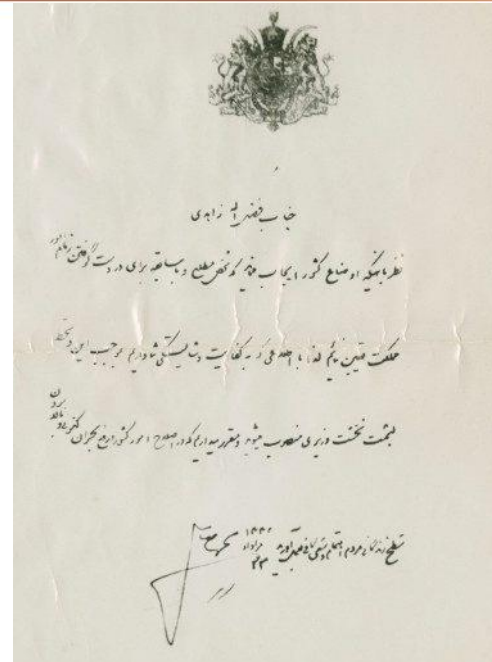 جناب فضل اله زاهدی
نظر باینکه اوضاع کشور ایجاب مینماید که شخص مطلع و با سابقه برای در دست گرفتن زمام امور
مملکت تعیین نمائیم لذا با اطلاعی که به کفایت و شایستگی شما داریم بموجب این دستخط
بسمت نخست وزیری منصوب میشوید و مقرر میداریم که در اصلاح امور کشور و رفع بحران کنونی و بالا بردن
سطح زندگانی مردم اهتمام
مرداد